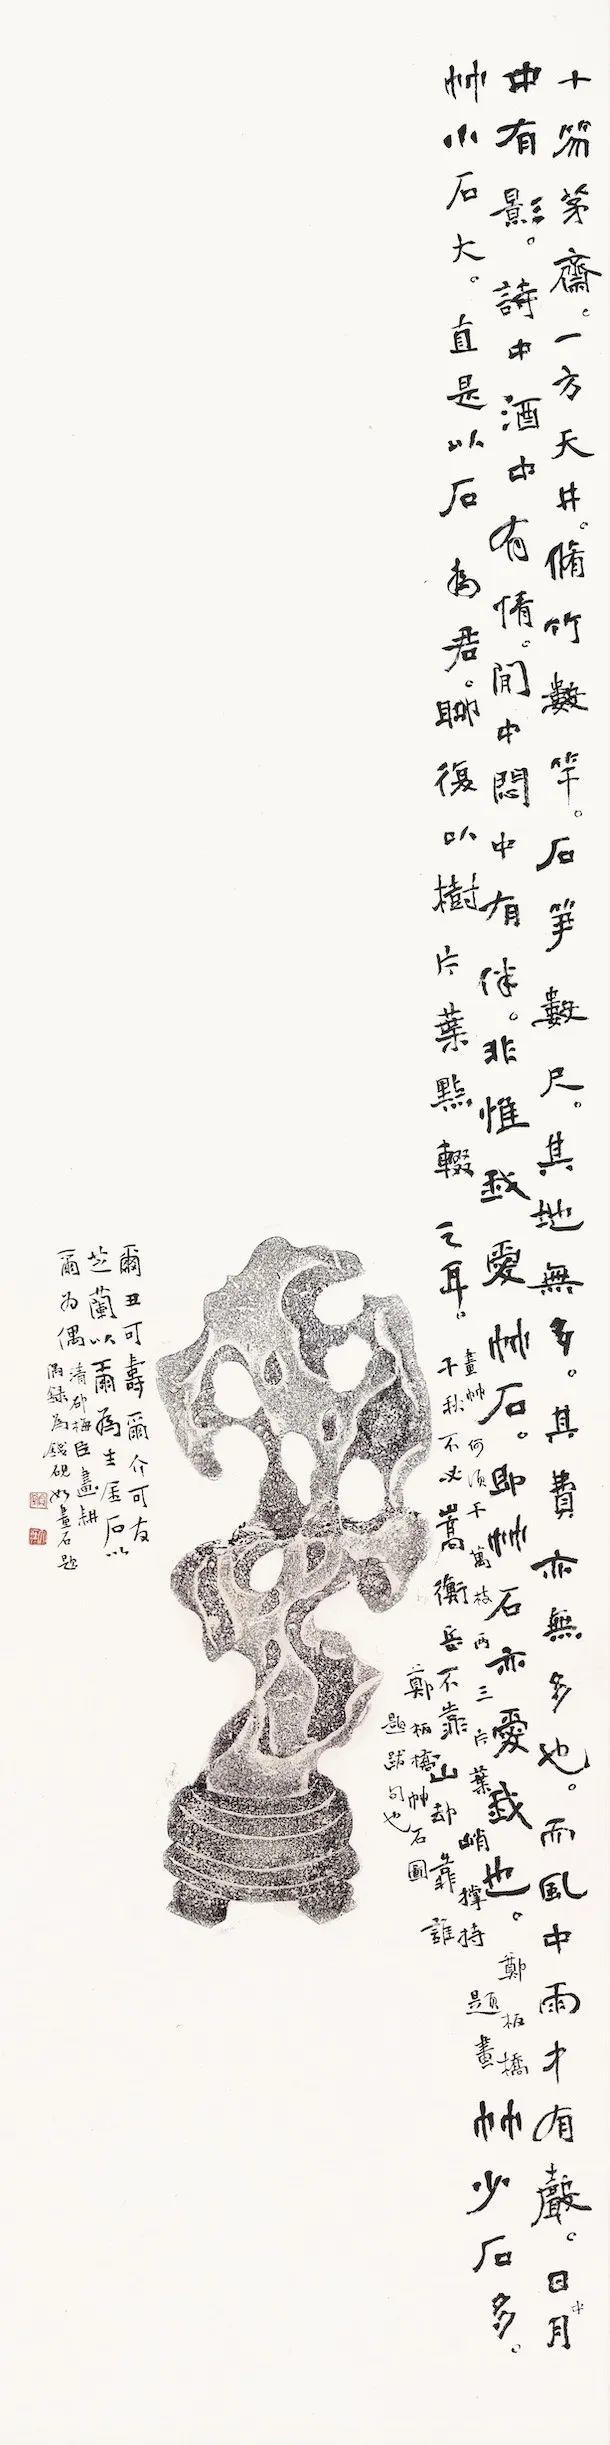 十笏茅齋。一方天井。脩竹數竿。石笋數尺。其地無多。其費亦無多也。而風中雨中有聲。日中月
中有影。詩中酒中有情。閒中悶中有伴。非惟我愛竹石。即竹石亦愛我也。
鄭板橋
題畫
竹少石多。
竹小石大。直是以石為君。聊復以樹片葉點輟之耳。
畫竹何須千萬枝兩三片葉峭撐持
千秋不必嵩衡岳不靠山却靠誰
鄭板橋竹石圖
題跋句也
爾丑可壽爾介可友
芝蘭以爾為生居石以
爾為偶
清邵梅臣畫耕
偶錄為錢硯如畫石題